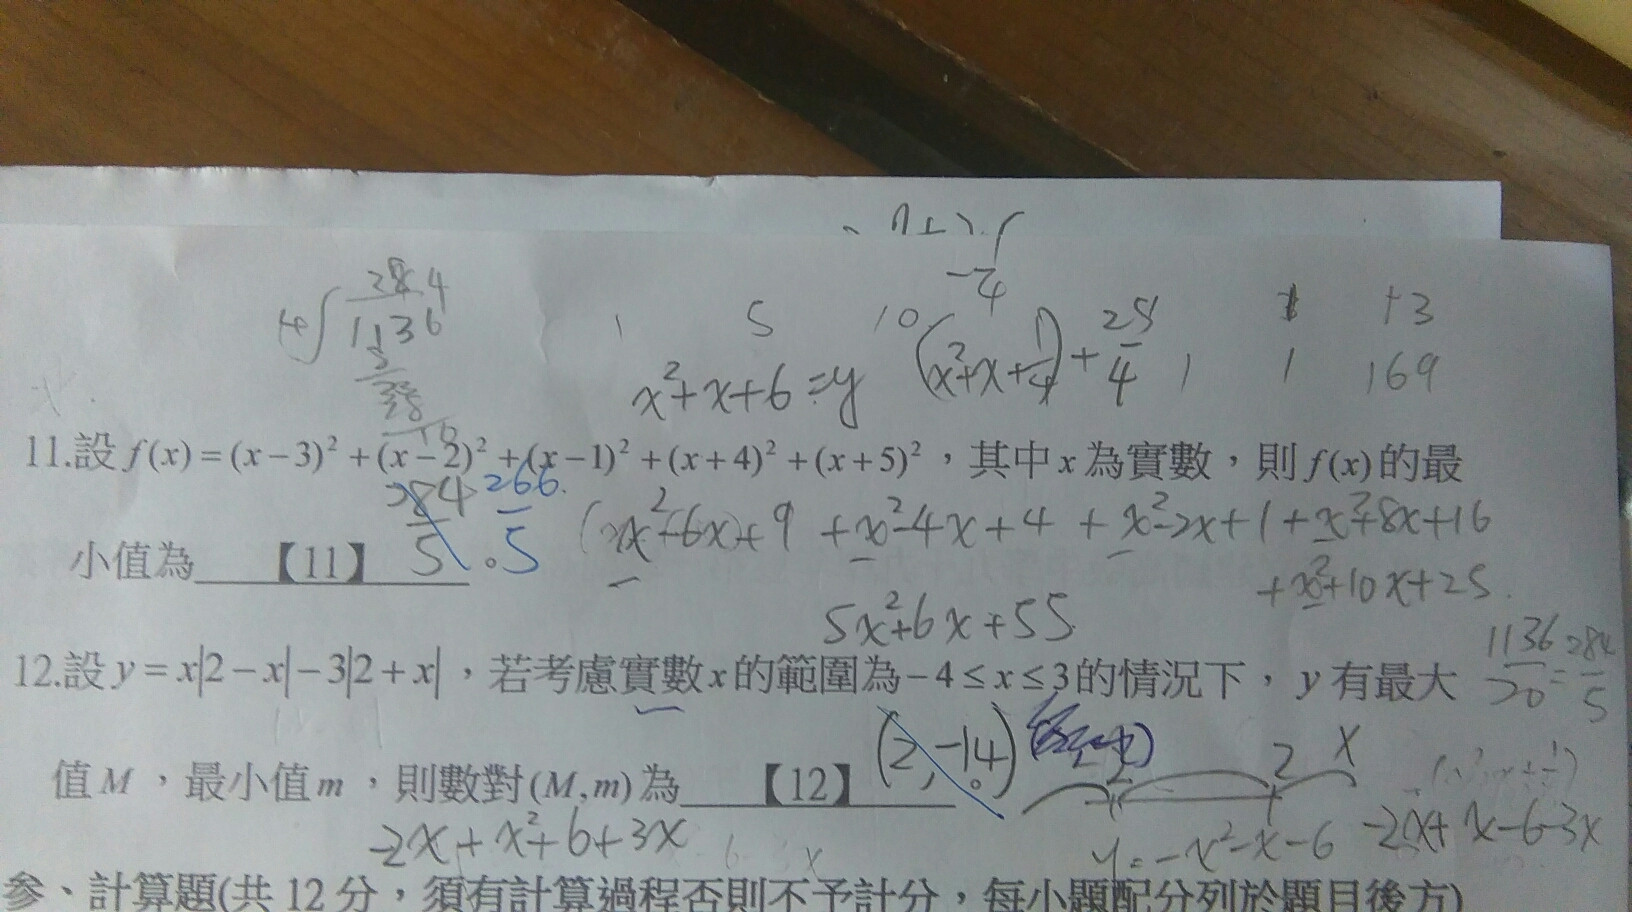 -7/4
284
4 1136
1 5 10 1 13
x²+x+6=y (x²+x+1/4)+25/4 1 1 169
11.設 f(x)=(x-3)²+(x-2)²+(x-1)²+(x+4)²+(x+5)²，其中 x 為實數，則 f(x) 的最
284/5 266/5 (x²-6x)+9 +x²-4x+4 +x²-2x+1+x²+8x+16
小值為 【11】 。
+x²+10x+25
5x²+6x+55
1136/20=284/5
12.設 y=x|2-x|-3|2+x|，若考慮實數 x 的範圍為 -4≤x≤3 的情況下，y 有最大
值 M，最小值 m，則數對 (M,m) 為 【12】 。
(2,-14) -2 2 x
-2x+x²+6+3x y=-x²-x-6
參、計算題(共 12 分，須有計算過程否則不予計分，每小題配分列於題目後方)